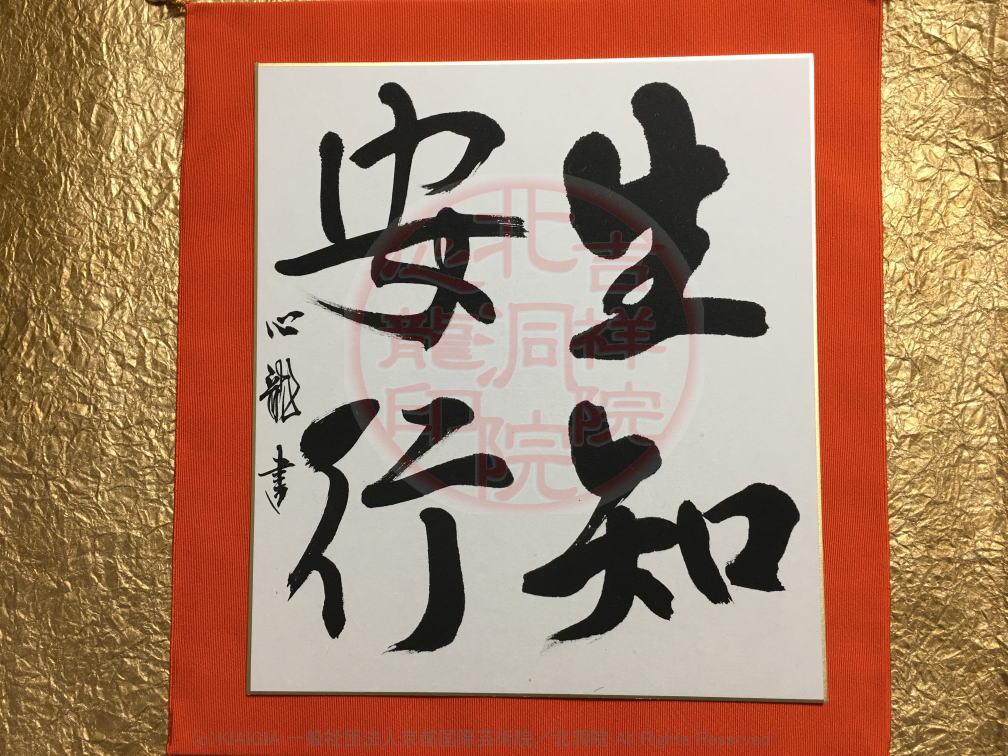 生知
安行
心龍書
吉祥院
北洞院
龍印
(c) KIAIGIA 一般社団法人京都国際芸術院／北洞院 All Rights Reserved.